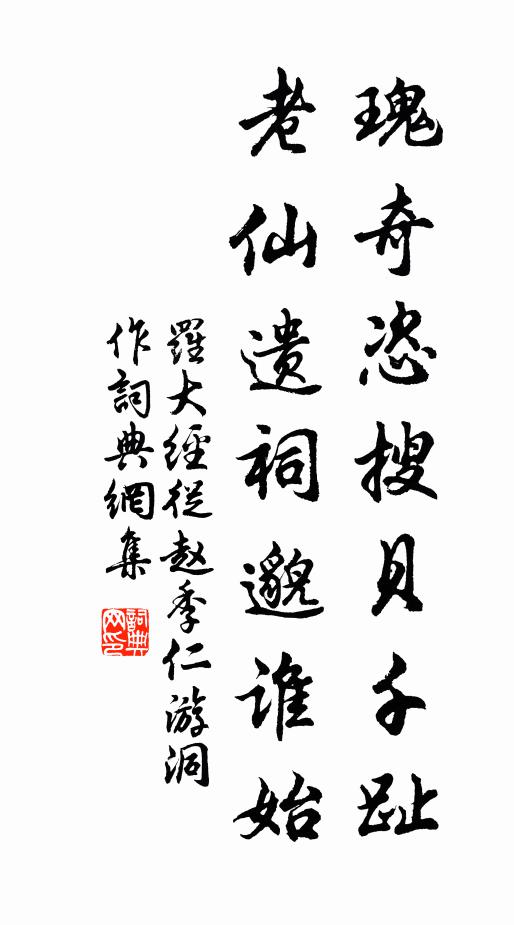 瑰奇恣搜貝千趾
老仙遗祠邈谁始
羅大經從赵季仁游洞
作詞典網集
詞典網印